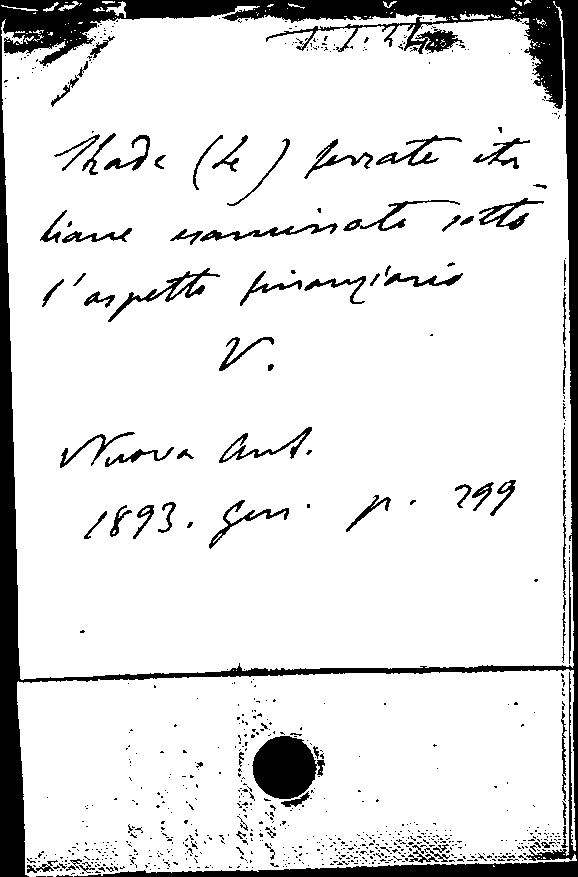 1.1.24
Strade (Le) ferrate ita
liane esaminate sotto
l'aspetto finanziario
V.
Nuova Ant.
1893. Gen. p. 299